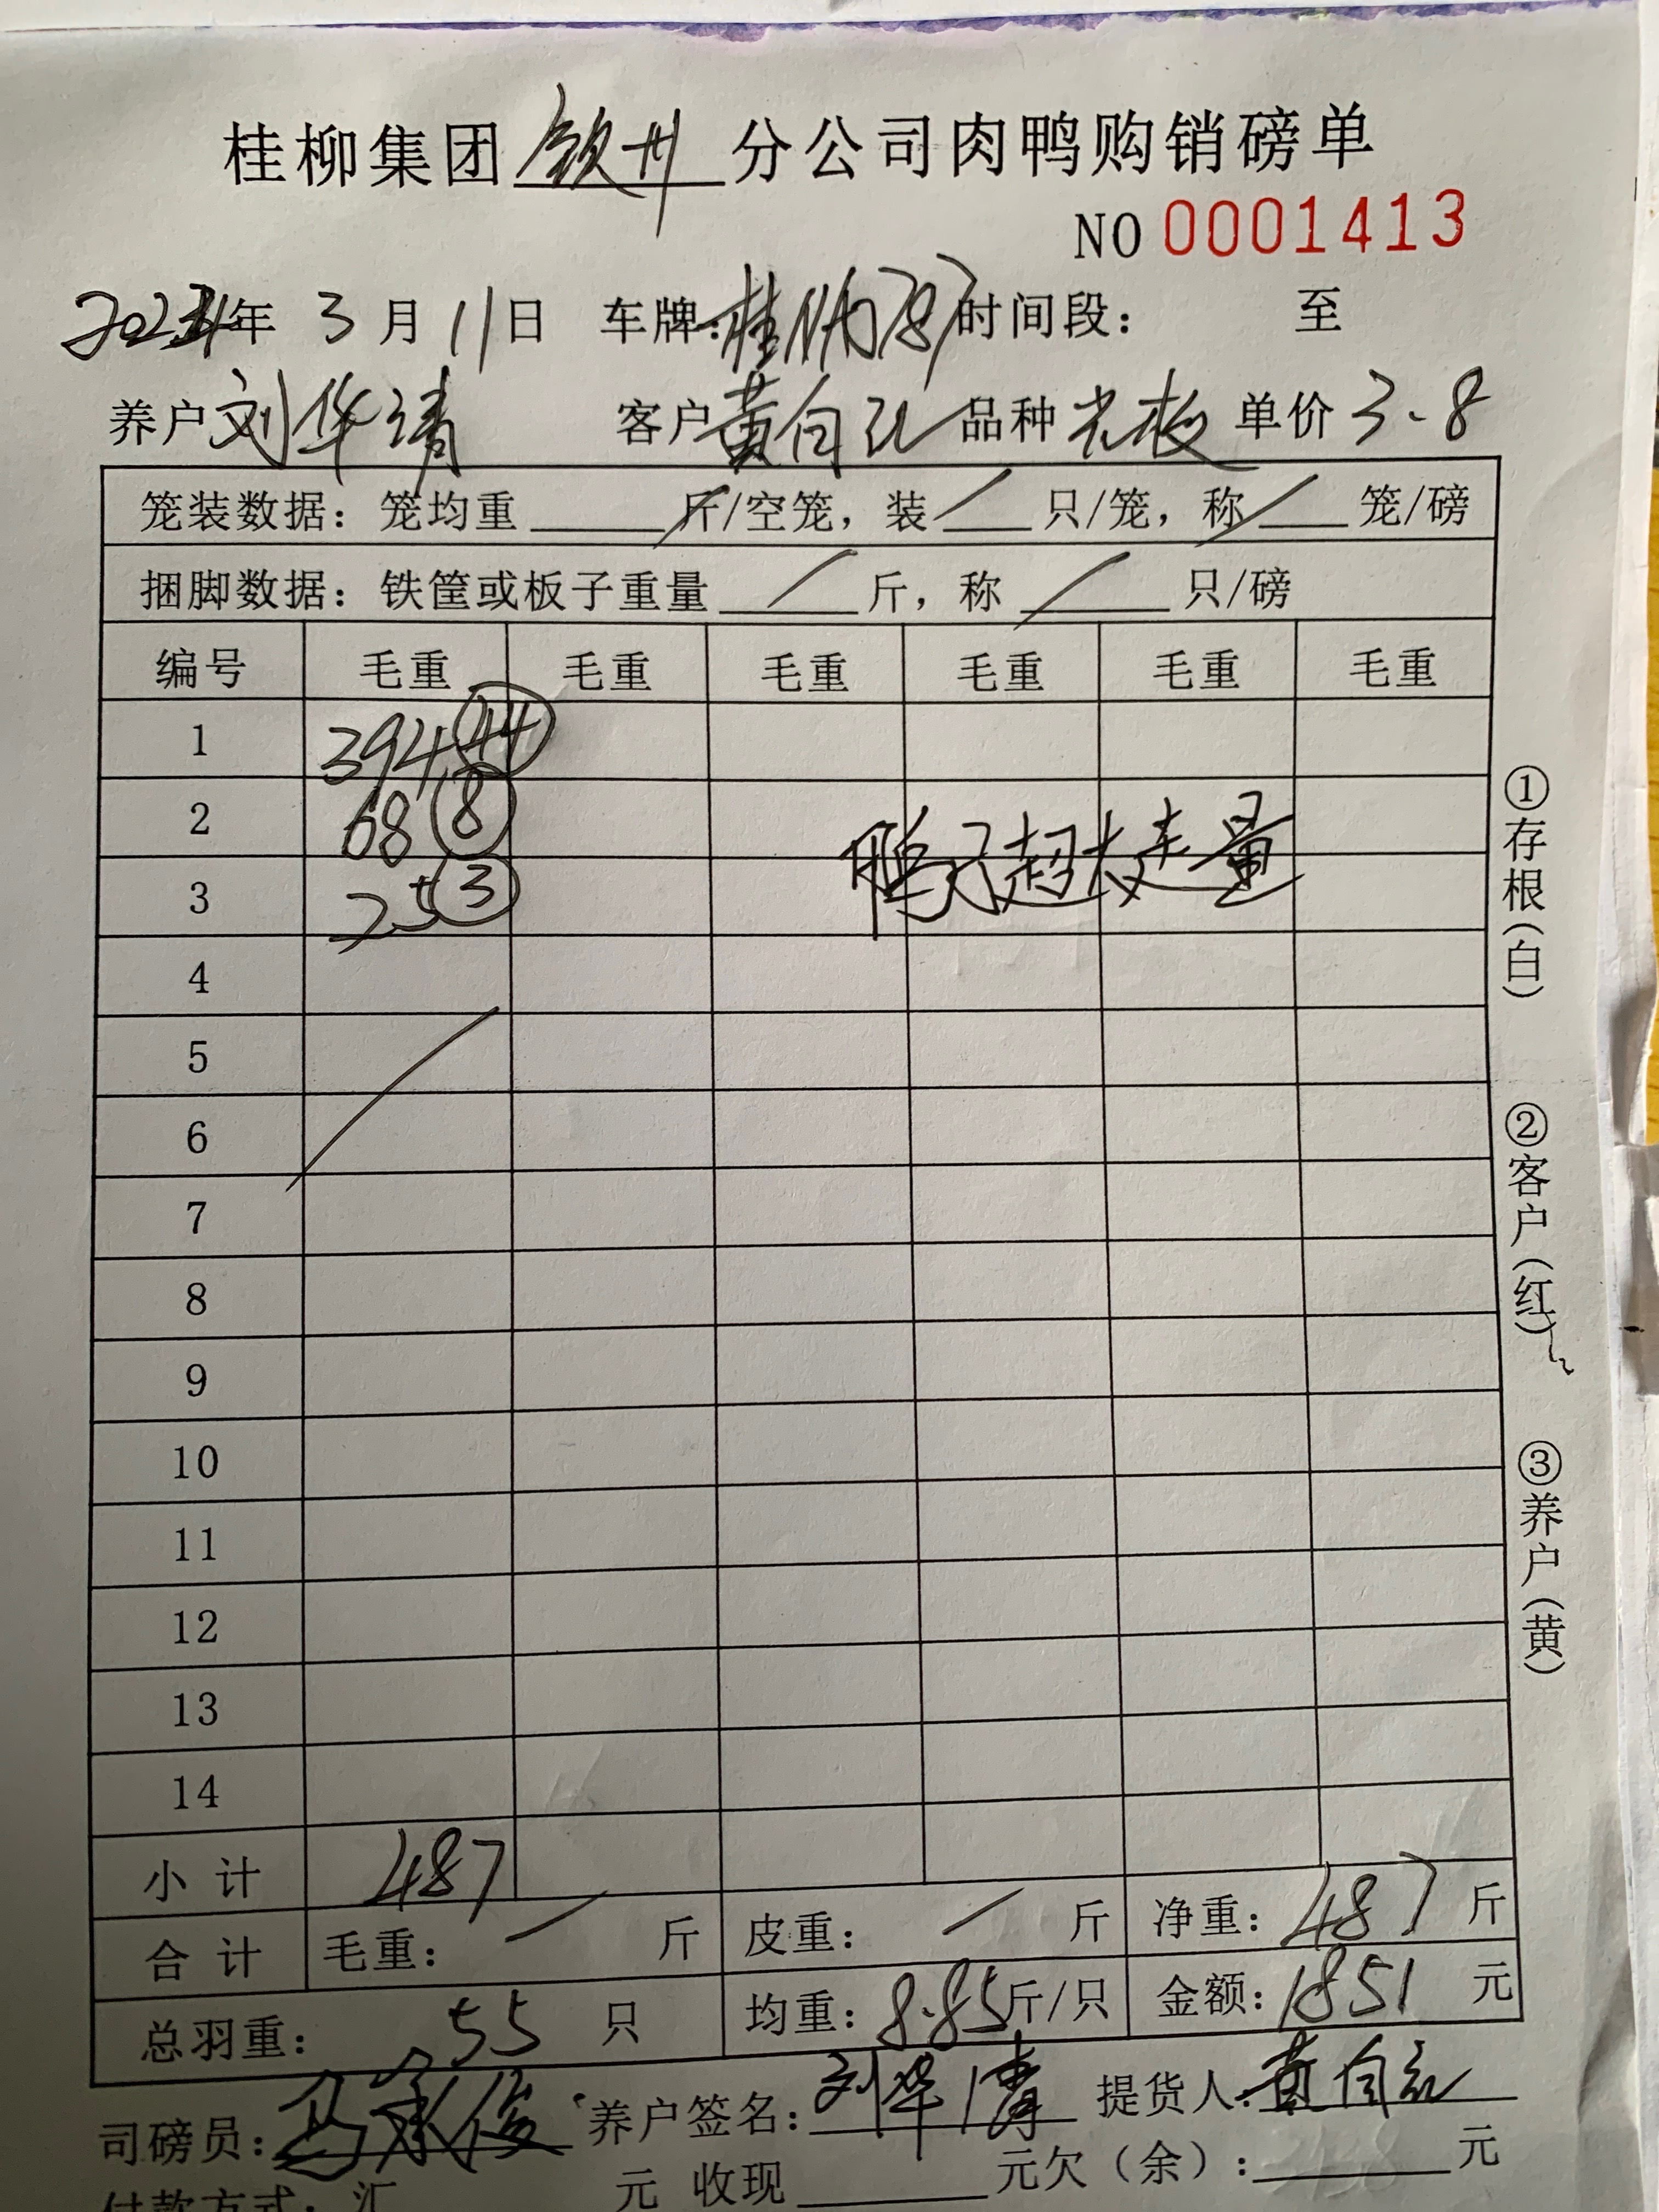 桂柳集团钦州分公司肉鸭购销磅单
NO 0001413
年 3月11日 车牌:桂 时间段: 至
养户刘华清 客户黄自 品种 单价3.8
笼装数据：笼均重____斤/空笼，装/只/笼，称/笼/磅
捆脚数据：铁筐或板子重量/斤，称/只/磅
编号 毛重 毛重 毛重 毛重 毛重 毛重
1 394 44
2 68 8
3 25 3
鸭子超大 量
4
5
6
7
8
9
10
11
12
13
14
小计 487
合计 毛重：/斤 皮重：/斤 净重：487斤
总羽重：55只 均重：8.85斤/只 金额：1851元
司磅员：俊 养户签名：刘华清 提货人：黄自
付款方式：汇 元 收现____元欠（余）：____元
①存根（白）
②客户（红）
③养户（黄）